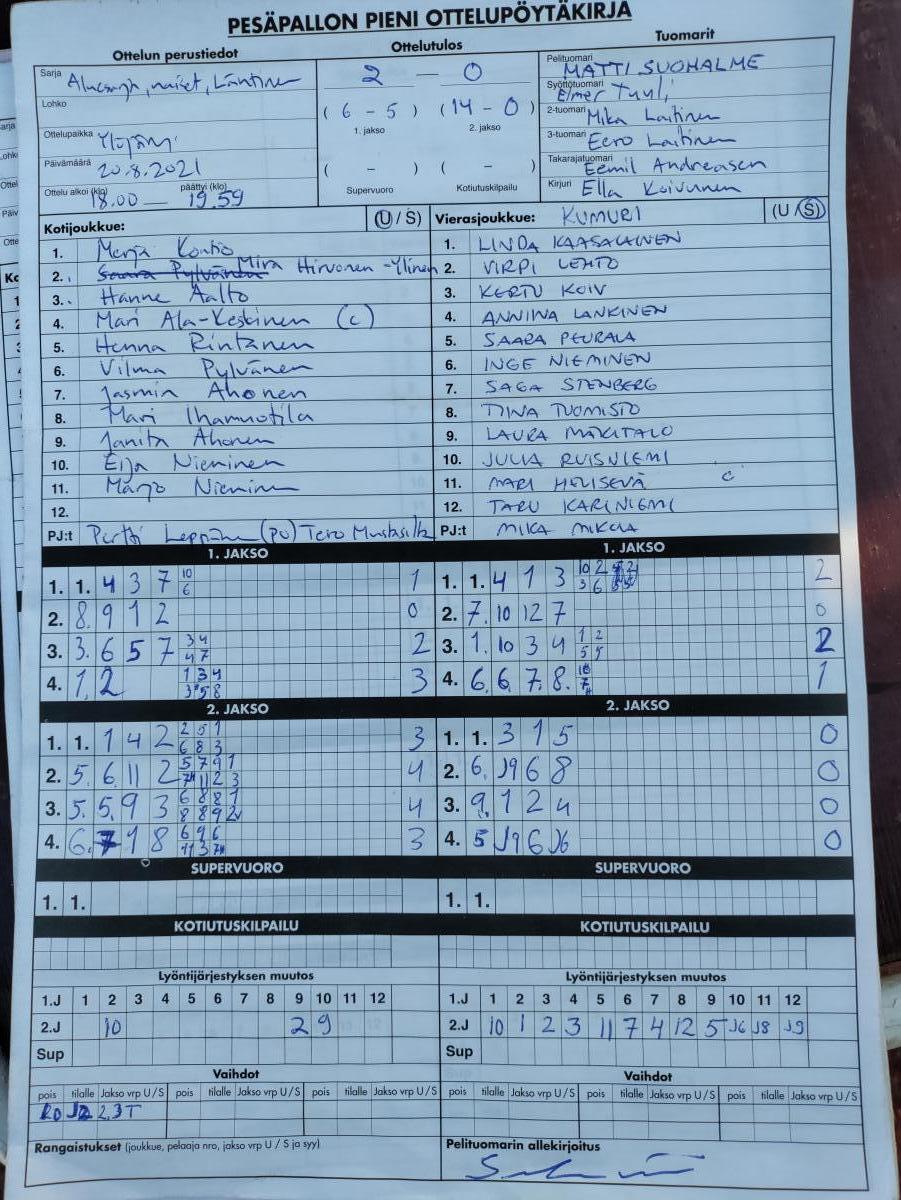 PESÄPALLON PIENI OTTELUPÖYTÄKIRJA
Ottelun perustiedot
Ottelutulos
Tuomarit
Sarja Aluesarja, naiset, Läntinen
Lohko
Ottelupaikka Ylöjärvi
Päivämäärä 20.8.2021
Ottelu alkoi (klo) 18.00 — päättyi (klo) 19.59
2 — 0
( 6 - 5 ) ( 14 - 0 )
1. jakso 2. jakso
( - ) ( - )
Supervuoro Kotiutuskilpailu
Pelituomari MATTI SUOHALME
Syöttötuomari Elmer Tuuli
2-tuomari Mika Laitinen
3-tuomari Eero Laitinen
Takarajatuomari Eemil Andreasen
Kirjuri Ella Koivunen
Kotijoukkue: (U / S)
1. Merja Kontio
2. Saara Pylvänen Mira Hirvonen-Ylinen
3. Hanne Aalto
4. Mari Ala-Keskinen (c)
5. Henna Rintanen
6. Vilma Pylvänen
7. Jasmin Ahonen
8. Mari Ihamuotila
9. Janita Ahonen
10. Eija Nieminen
11. Marjo Nieminen
12.
PJ:t Pertti (PJ) Tero
Vierasjoukkue: KUMURI (U / S)
1. LINDA KAASALAINEN
2. VIRPI LEHTO
3. KERTU KOIV
4. ANNIINA LANKINEN
5. SAARA PEURALA
6. INGE NIEMINEN
7. SAGA STENBERG
8. TIINA TUOMISTO
9. LAURA MÄKITALO
10. JULIA RUISNIEMI
11. MARI HELISEVÄ c
12. TARU KARINIEMI
PJ:t MIKA MIKOLA
1. JAKSO
1. 1. 4 3 7 10 1
6
2. 8. 9 1 2 0
3. 3. 6 5 7 3 4 2
4 7
4. 1. 2 1 3 4 3
3 5 8
2. JAKSO
1. 1. 1 4 2 2 5 1 3
6 8 3
2. 5. 6 11 2 5 7 9 1 4
7 11 2 3
3. 5. 5. 9 3 6 8 8 1 4
8 8 9 2
4. 6. 1 8 6 9 6 3
11 3 7
SUPERVUORO
1. 1.
KOTIUTUSKILPAILU
Lyöntijärjestyksen muutos
1.J 1 2 3 4 5 6 7 8 9 10 11 12
2.J 10 2 9
Sup
Vaihdot
pois tilalle Jakso vrp U / S pois tilalle Jakso vrp U / S pois tilalle Jakso vrp U / S
2.3T
Rangaistukset (joukkue, pelaaja nro, jakso vrp U / S ja syy)
1. JAKSO
1. 1. 4 1 3 10 2 2
3 6
2. 7. 10 12 7 0
3. 1. 10 3 4 1 2 2
5 5
4. 6. 6. 7. 8. 10 1
7
2. JAKSO
1. 1. 3 1 5 0
2. 6. J9 6 8 0
3. 9. 1 2 4 0
4. 5 J9 6 J6 0
SUPERVUORO
1. 1.
KOTIUTUSKILPAILU
Lyöntijärjestyksen muutos
1.J 1 2 3 4 5 6 7 8 9 10 11 12
2.J 10 1 2 3 11 7 4 12 5 J6 J8 J9
Sup
Vaihdot
pois tilalle Jakso vrp U / S pois tilalle Jakso vrp U / S pois tilalle Jakso vrp U / S
Pelituomarin allekirjoitus